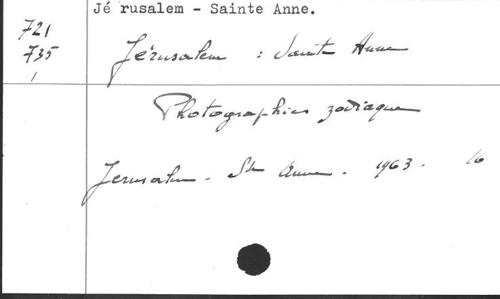 Jé rusalem - Sainte Anne.
721
735
Jérusalem : Sainte Anne
Photographies zodiaque
Jerusalem - Ste Anne - 1963 - 16